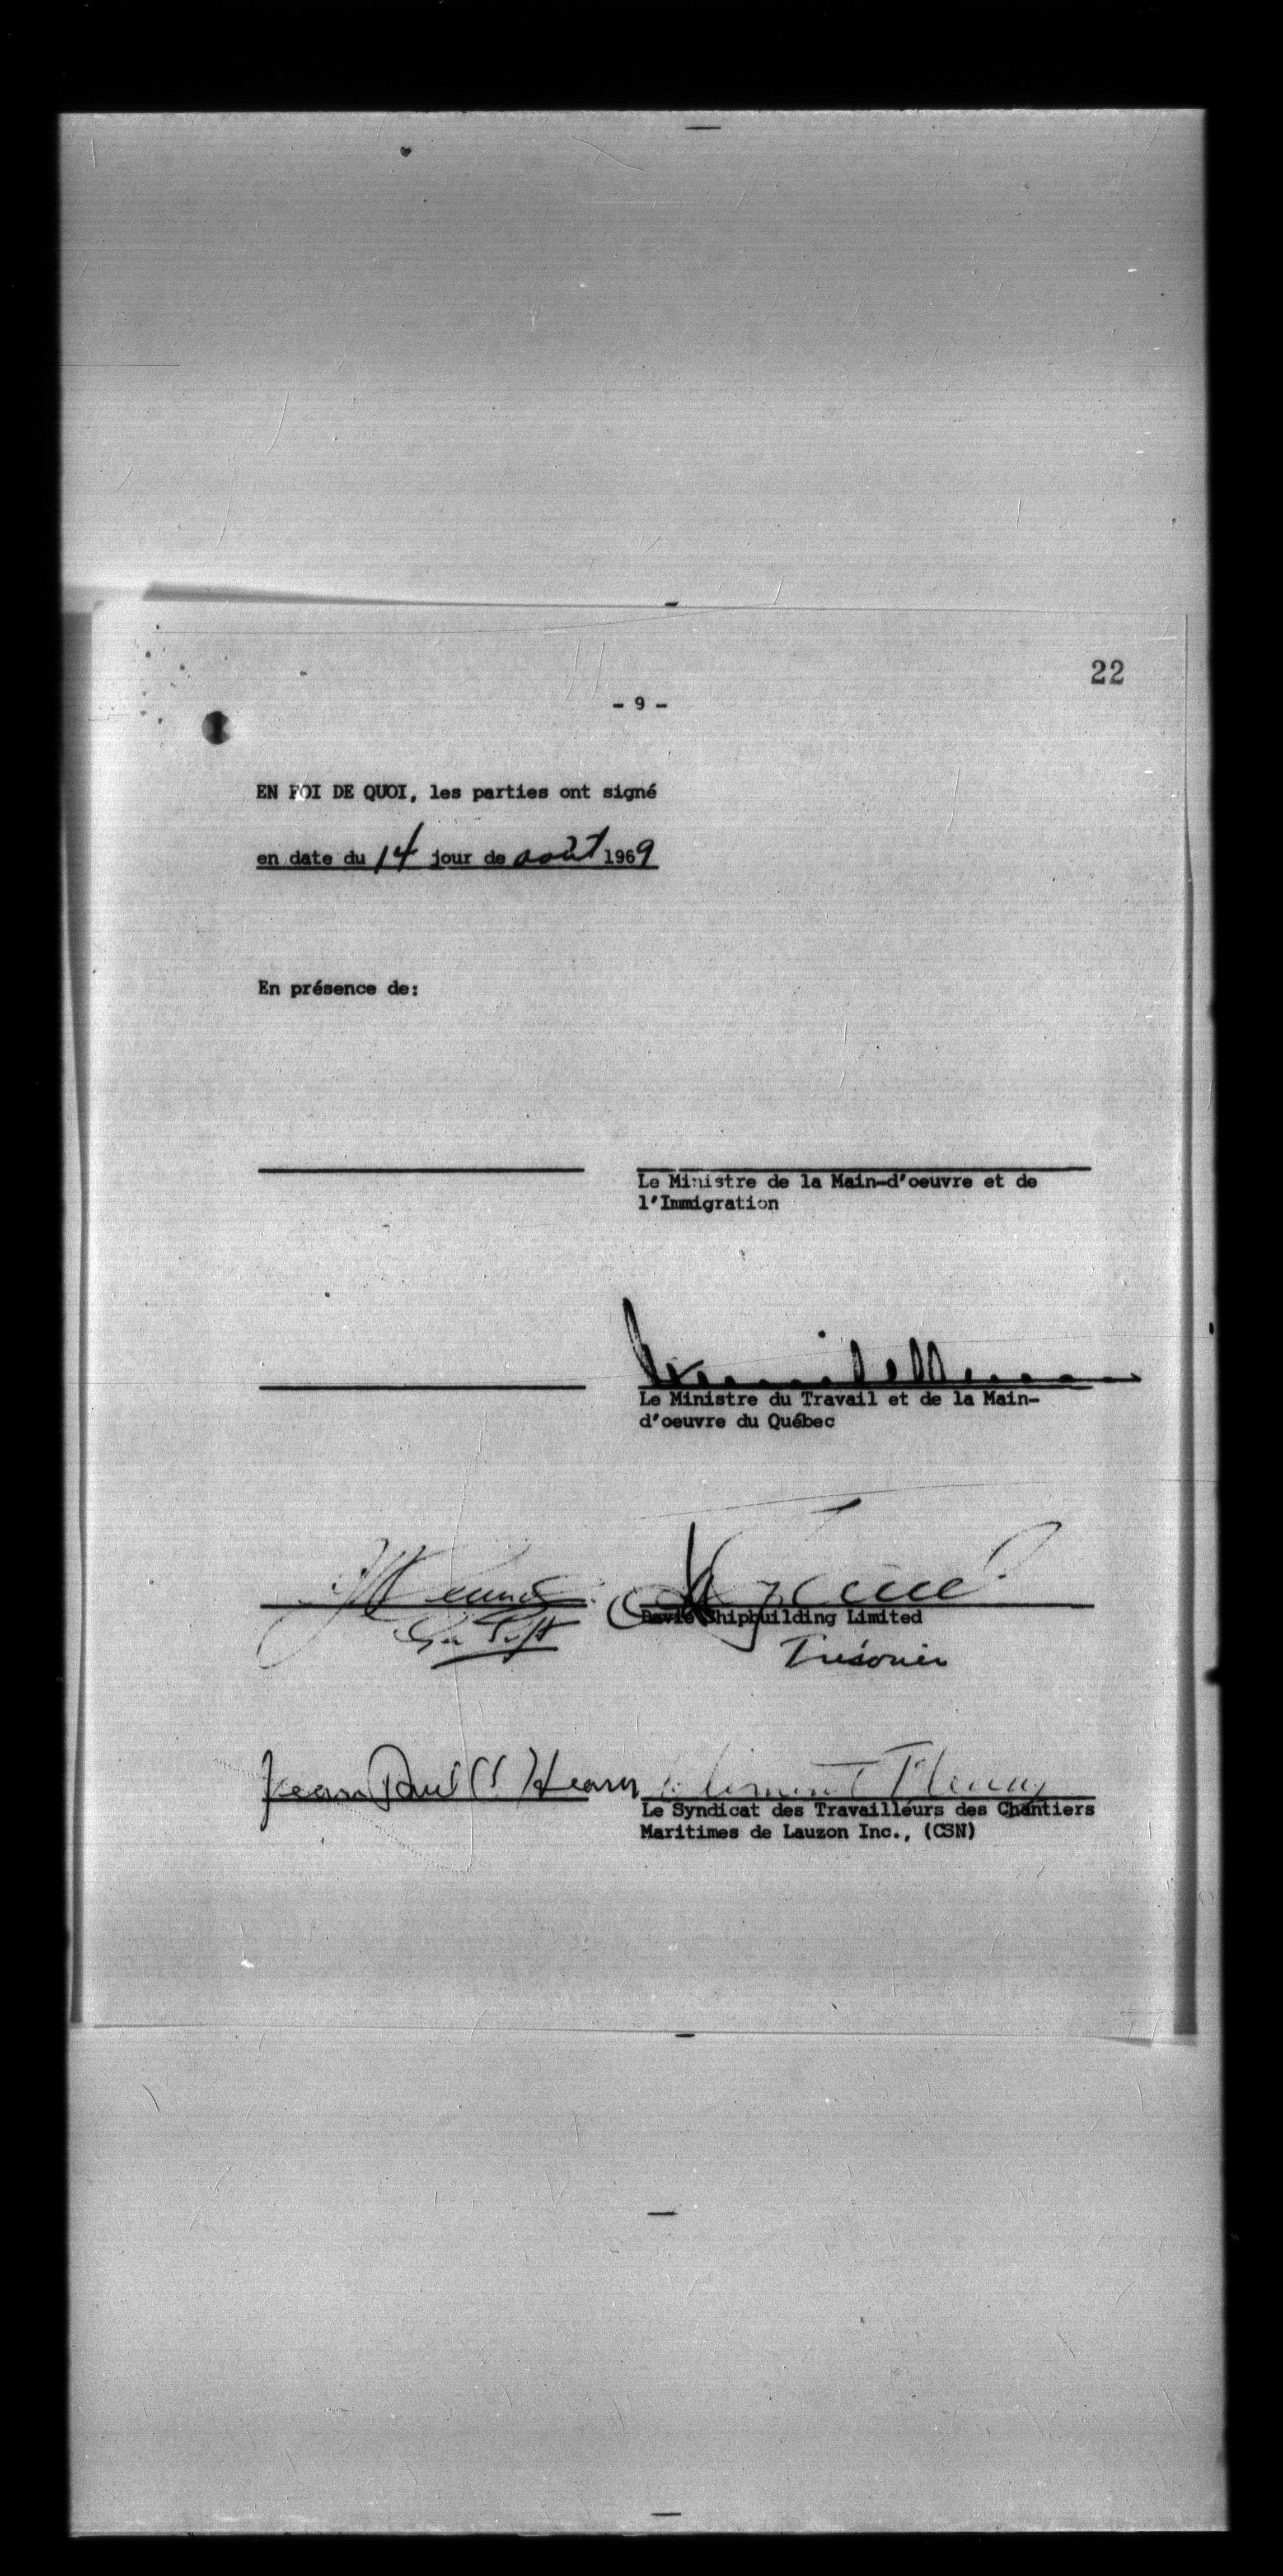 22
- 9 -
EN FOI DE QUOI, les parties ont signé
en date du 14 jour de août 1969
En présence de:
Le Ministre de la Main-d'oeuvre et de
l'Immigration
Le Ministre du Travail et de la Main-
d'oeuvre du Québec
Davie Shipbuilding Limited
Trésorier
Jean Paul
Le Syndicat des Travailleurs des Chantiers
Maritimes de Lauzon Inc., (CSN)